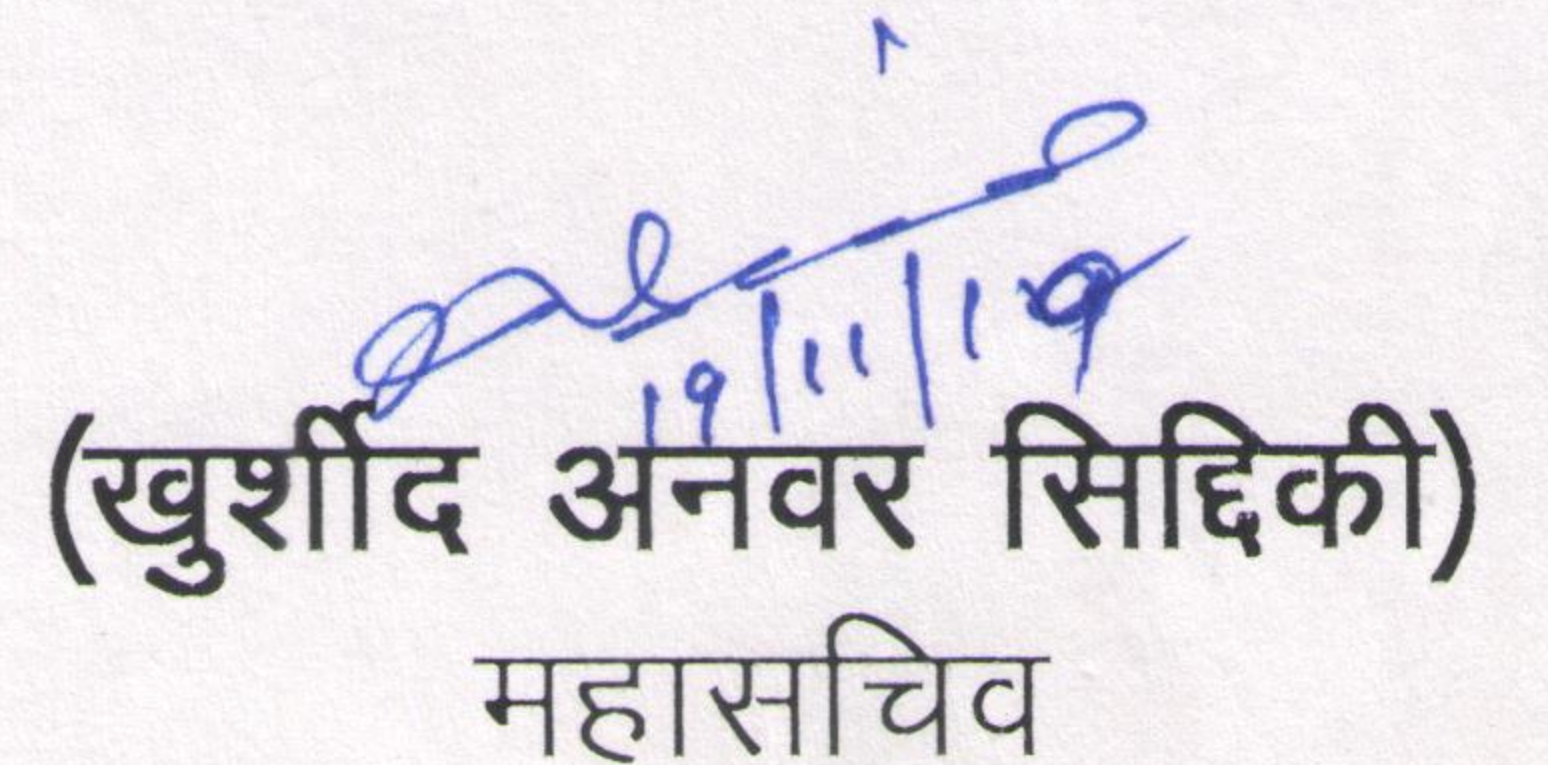 19/11/19
(खुर्शीद अनवर सिद्दिकी)
महासचिव